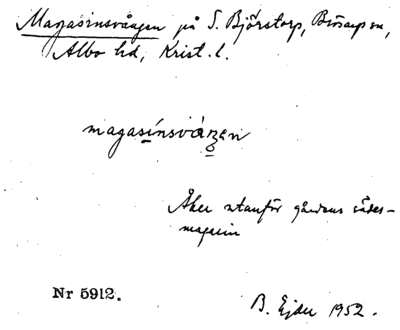 Magasinsvången på S. Björstorp, Brösarps sn,
Albo hd, Krist. l.
magasínsvåŋen
Åker utanför gårdens sädes-
magasin
Nr 5912.
B. Ejder 1952.